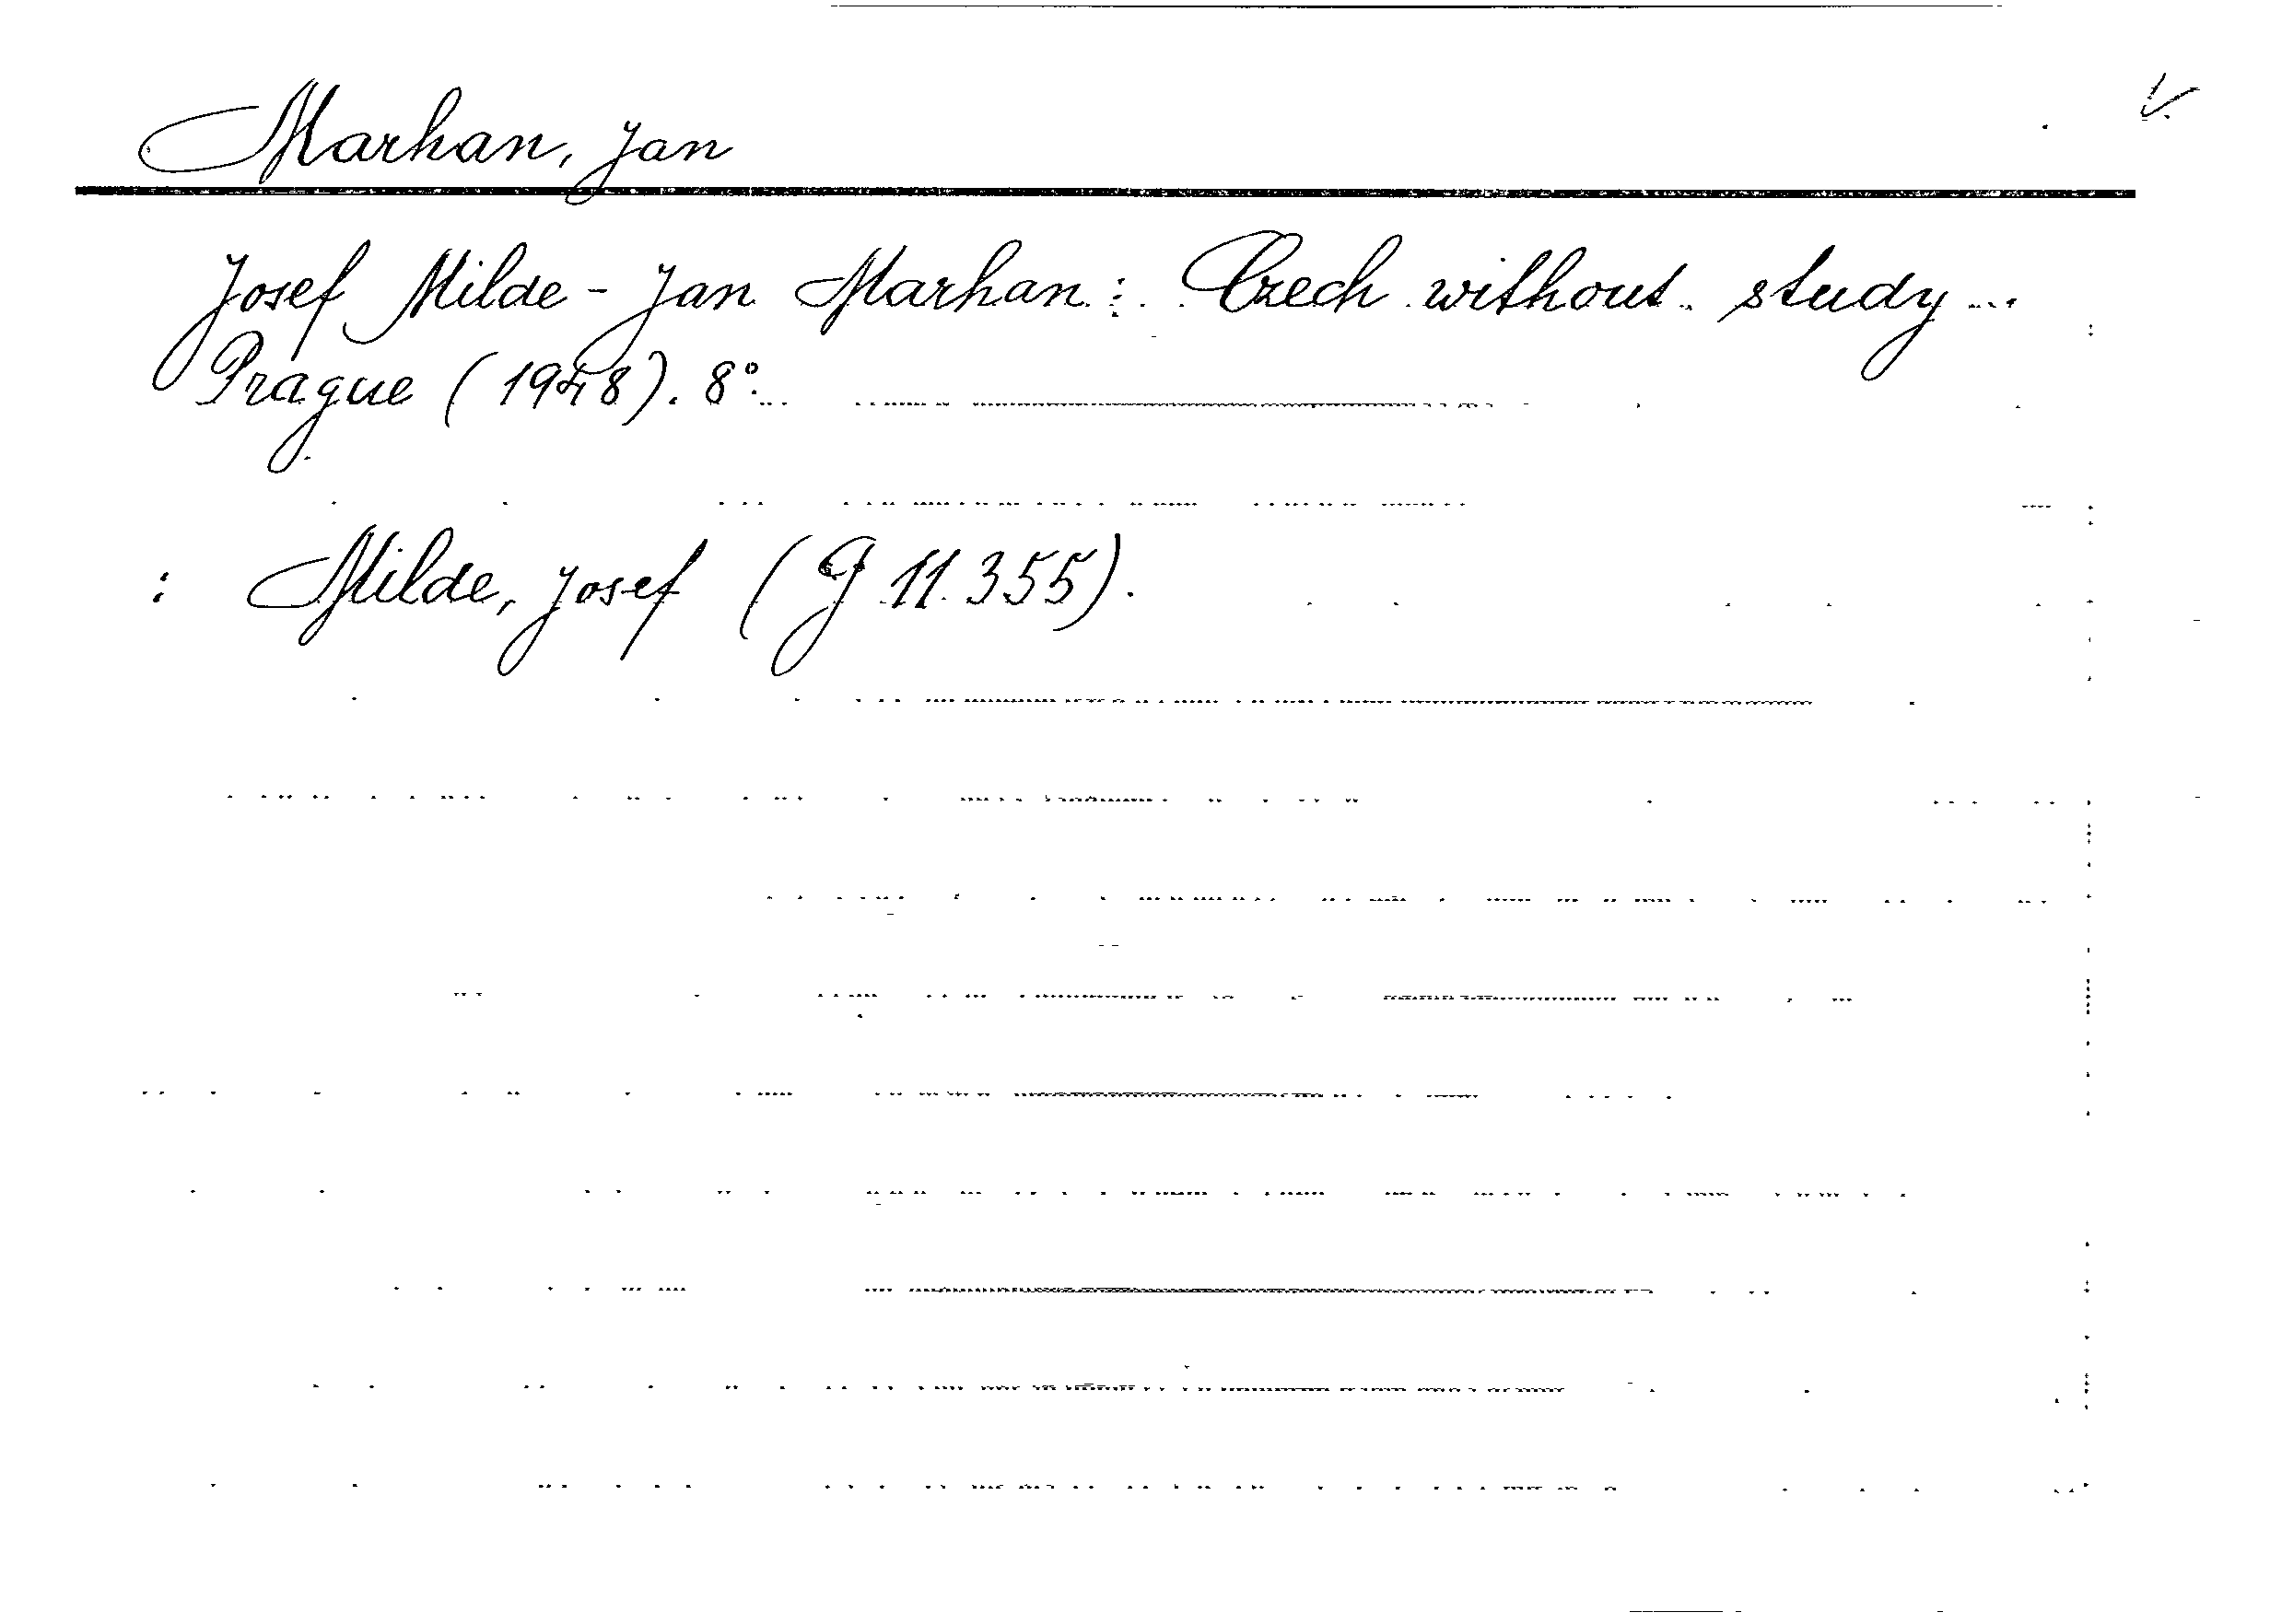 Marhan, Jan
Josef Milde - Jan Marhan: Czech without study...
Prague (1948). 8°.
: Milde, Josef (G 11.355).